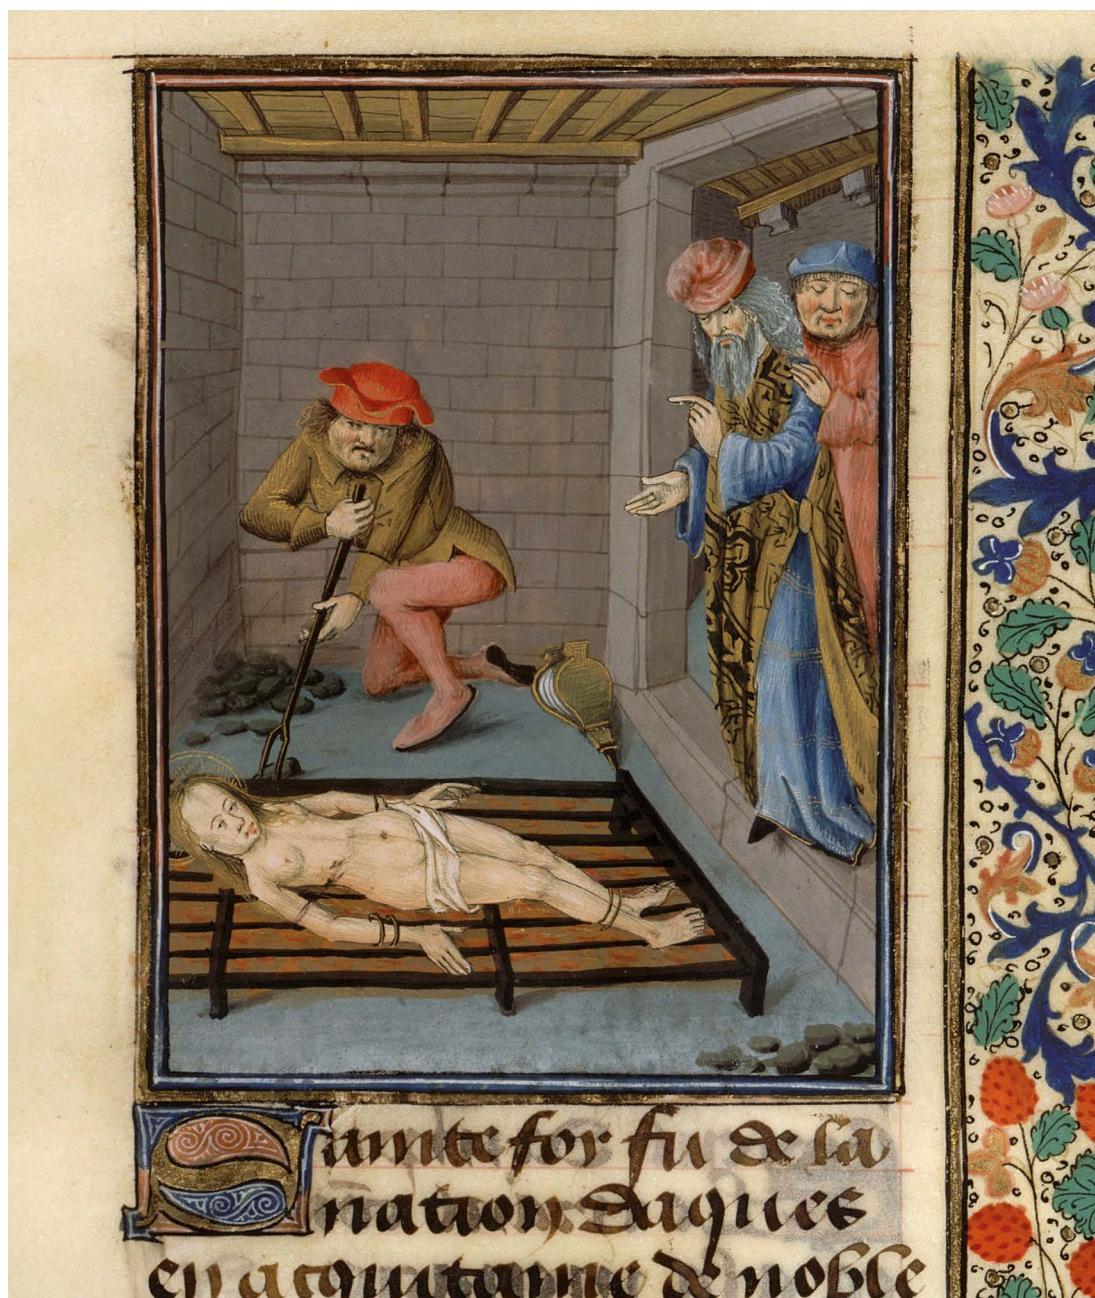 Sainte for fu de la
nation daques
en acquitanie de noble